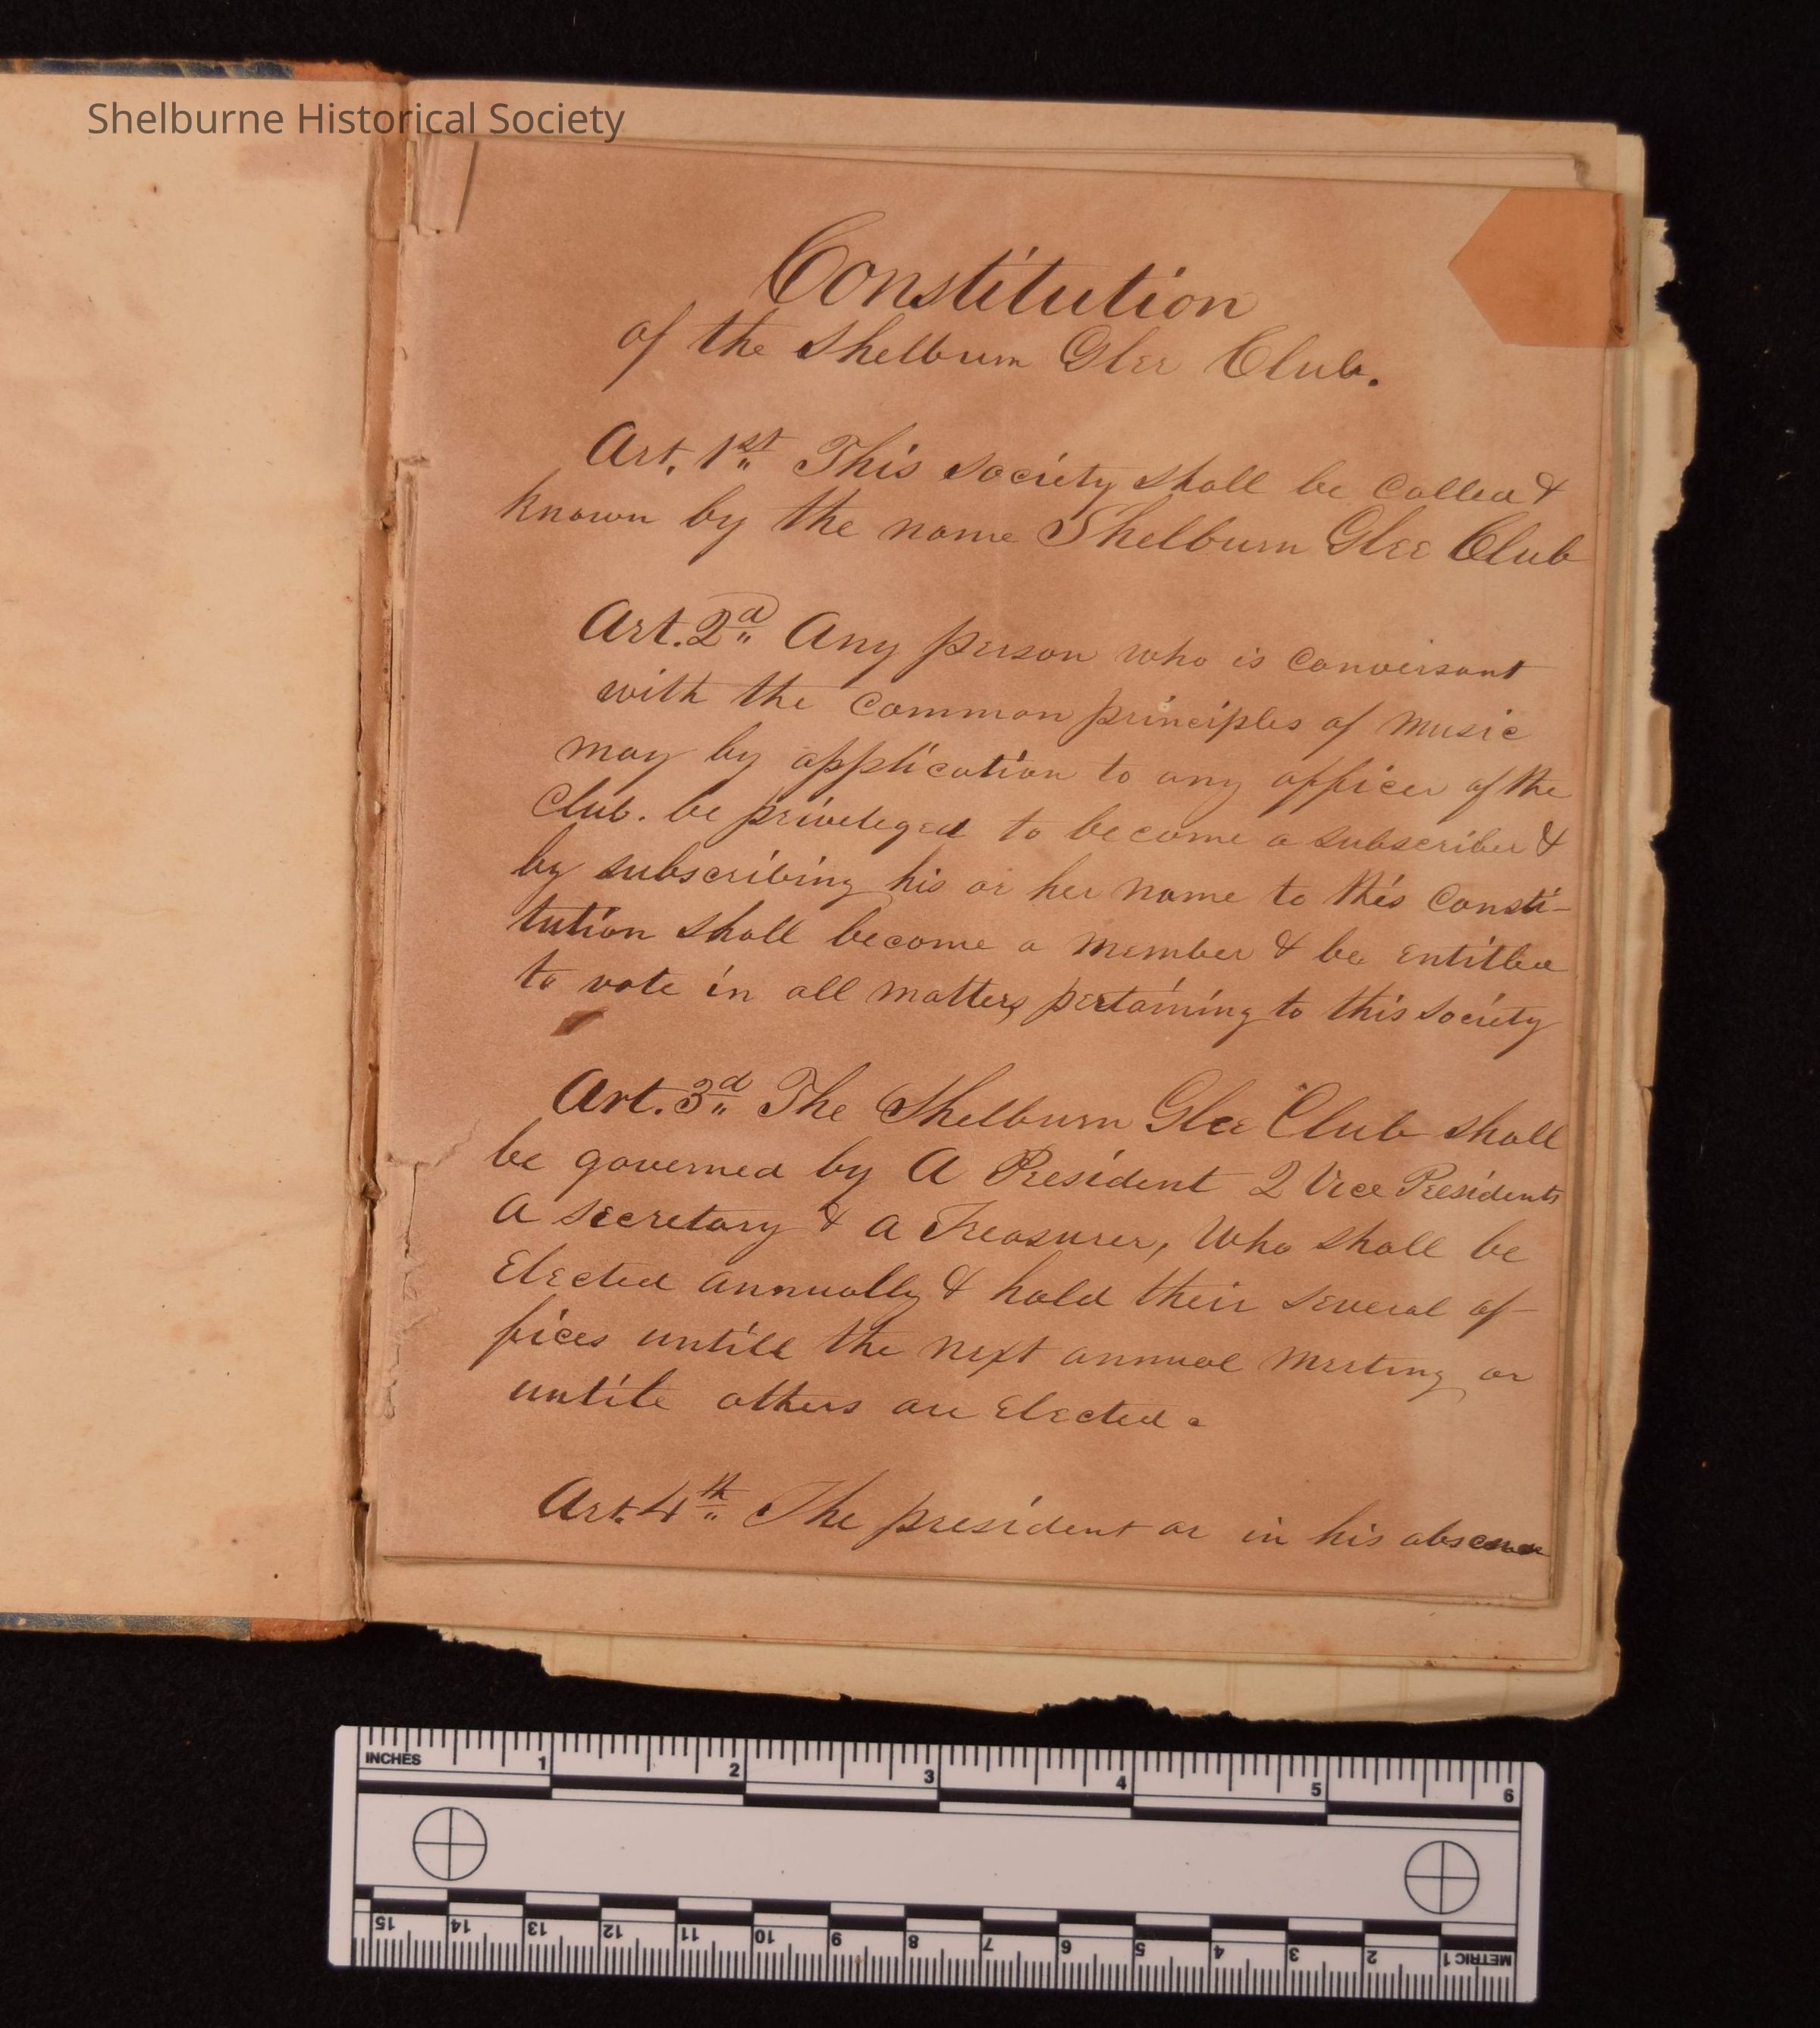 Shelburne Historical Society
Constitution
of the Shelburn Glee Club.
Art. 1st This society shall be called &
known by the name Shelburn Glee Club
Art. 2d Any person who is conversant
with the common principles of music
may by application to any officer of the
Club. be priveleged to become a subscriber &
by subscribing his or her name to this Consti-
tution shall become a member & be entitled
to vote in all matters pertaining to this society
Art. 3d The Shelburn Glee Club shall
be governed by A President 2 Vice Presidents
A secretary & A Treasurer, Who shall be
Elected annually & hold their several of-
fices untill the next annual meeting or
untile others are elected.
Art. 4th The president or in his absence
INCHES 1 2 3 4 5 6
15 14 13 12 11 10 9 8 7 6 5 4 3 2 1 METRIC